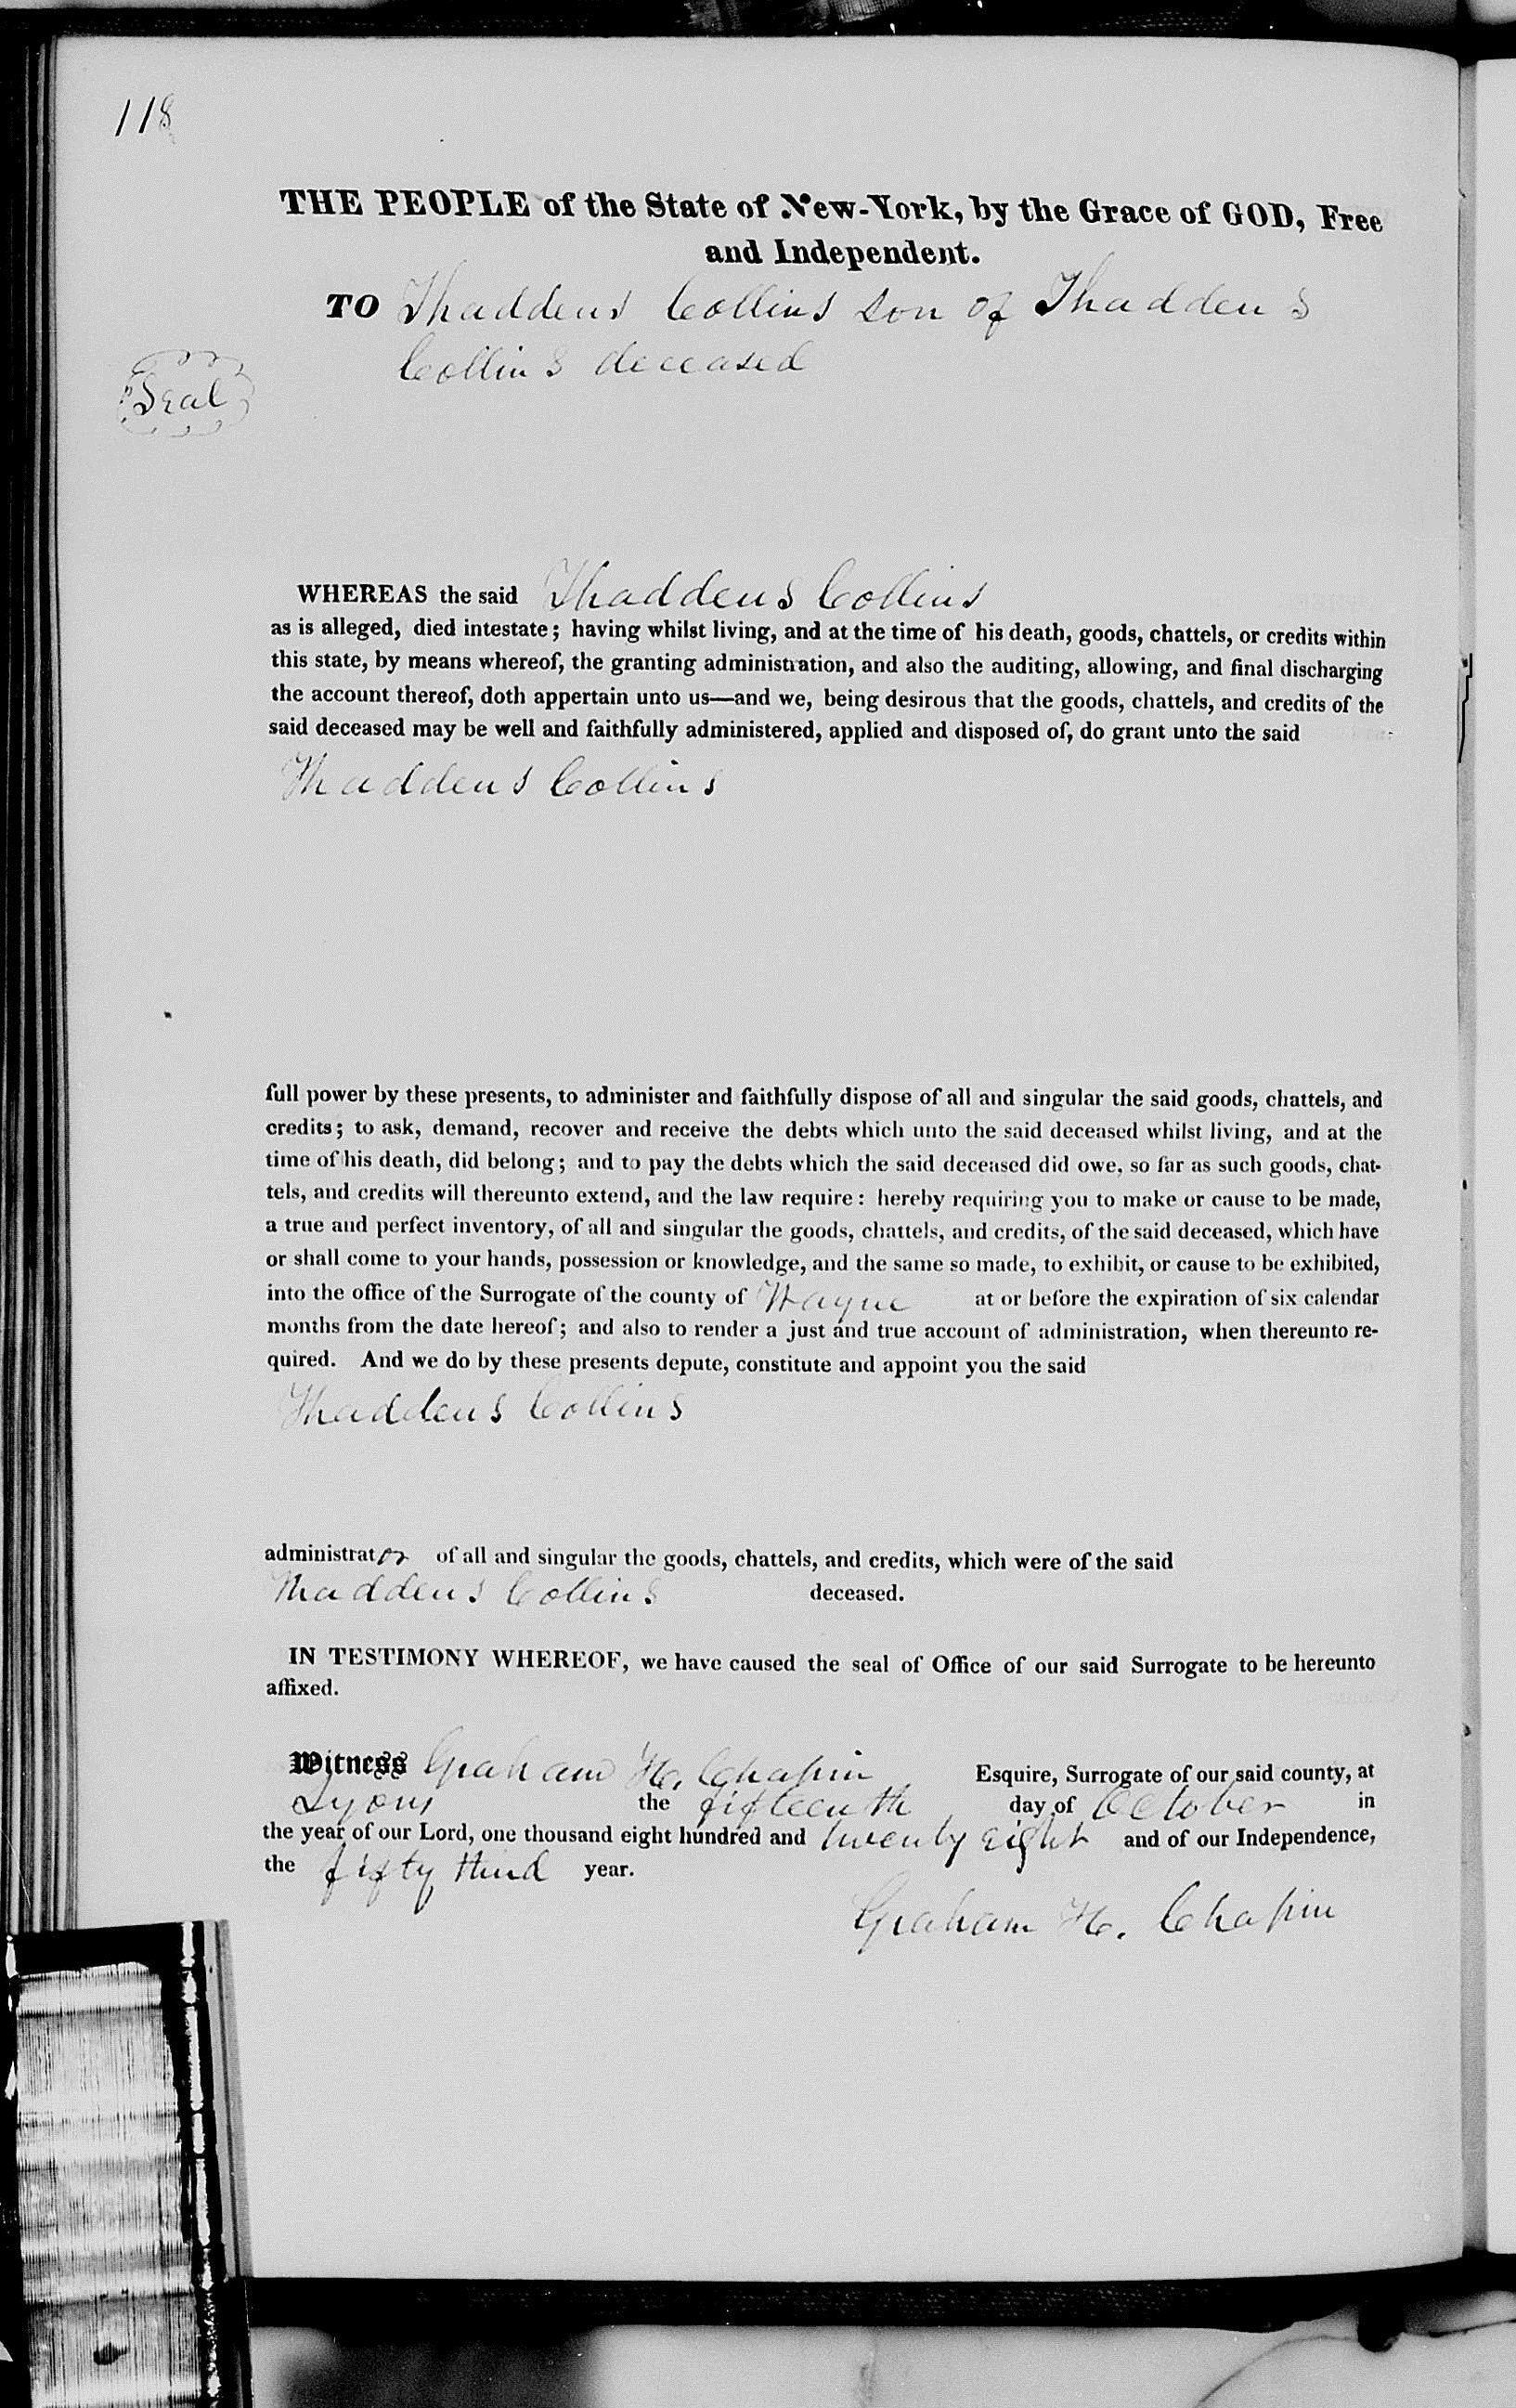 118
THE PEOPLE of the State of New-York, by the Grace of GOD, Free
and Independent.
TO Thaddeus Collins son of Thaddeus
Collins deceased
Seal
WHEREAS the said Thaddeus Collins
as is alleged, died intestate; having whilst living, and at the time of his death, goods, chattels, or credits within
this state, by means whereof, the granting administration, and also the auditing, allowing, and final discharging
the account thereof, doth appertain unto us—and we, being desirous that the goods, chattels, and credits of the
said deceased may be well and faithfully administered, applied and disposed of, do grant unto the said
Thaddeus Collins
full power by these presents, to administer and faithfully dispose of all and singular the said goods, chattels, and
credits; to ask, demand, recover and receive the debts which unto the said deceased whilst living, and at the
time of his death, did belong; and to pay the debts which the said deceased did owe, so far as such goods, chat-
tels, and credits will thereunto extend, and the law require: hereby requiring you to make or cause to be made,
a true and perfect inventory, of all and singular the goods, chattels, and credits, of the said deceased, which have
or shall come to your hands, possession or knowledge, and the same so made, to exhibit, or cause to be exhibited,
into the office of the Surrogate of the county of Wayne at or before the expiration of six calendar
months from the date hereof; and also to render a just and true account of administration, when thereunto re-
quired. And we do by these presents depute, constitute and appoint you the said
Thaddeus Collins
administrator of all and singular the goods, chattels, and credits, which were of the said
Thaddeus Collins deceased.
IN TESTIMONY WHEREOF, we have caused the seal of Office of our said Surrogate to be hereunto
affixed.
Witness Graham H. Chapin Esquire, Surrogate of our said county, at
Lyons the fifteenth day of October in
the year of our Lord, one thousand eight hundred and twenty eight and of our Independence,
the fifty third year.
Graham H. Chapin